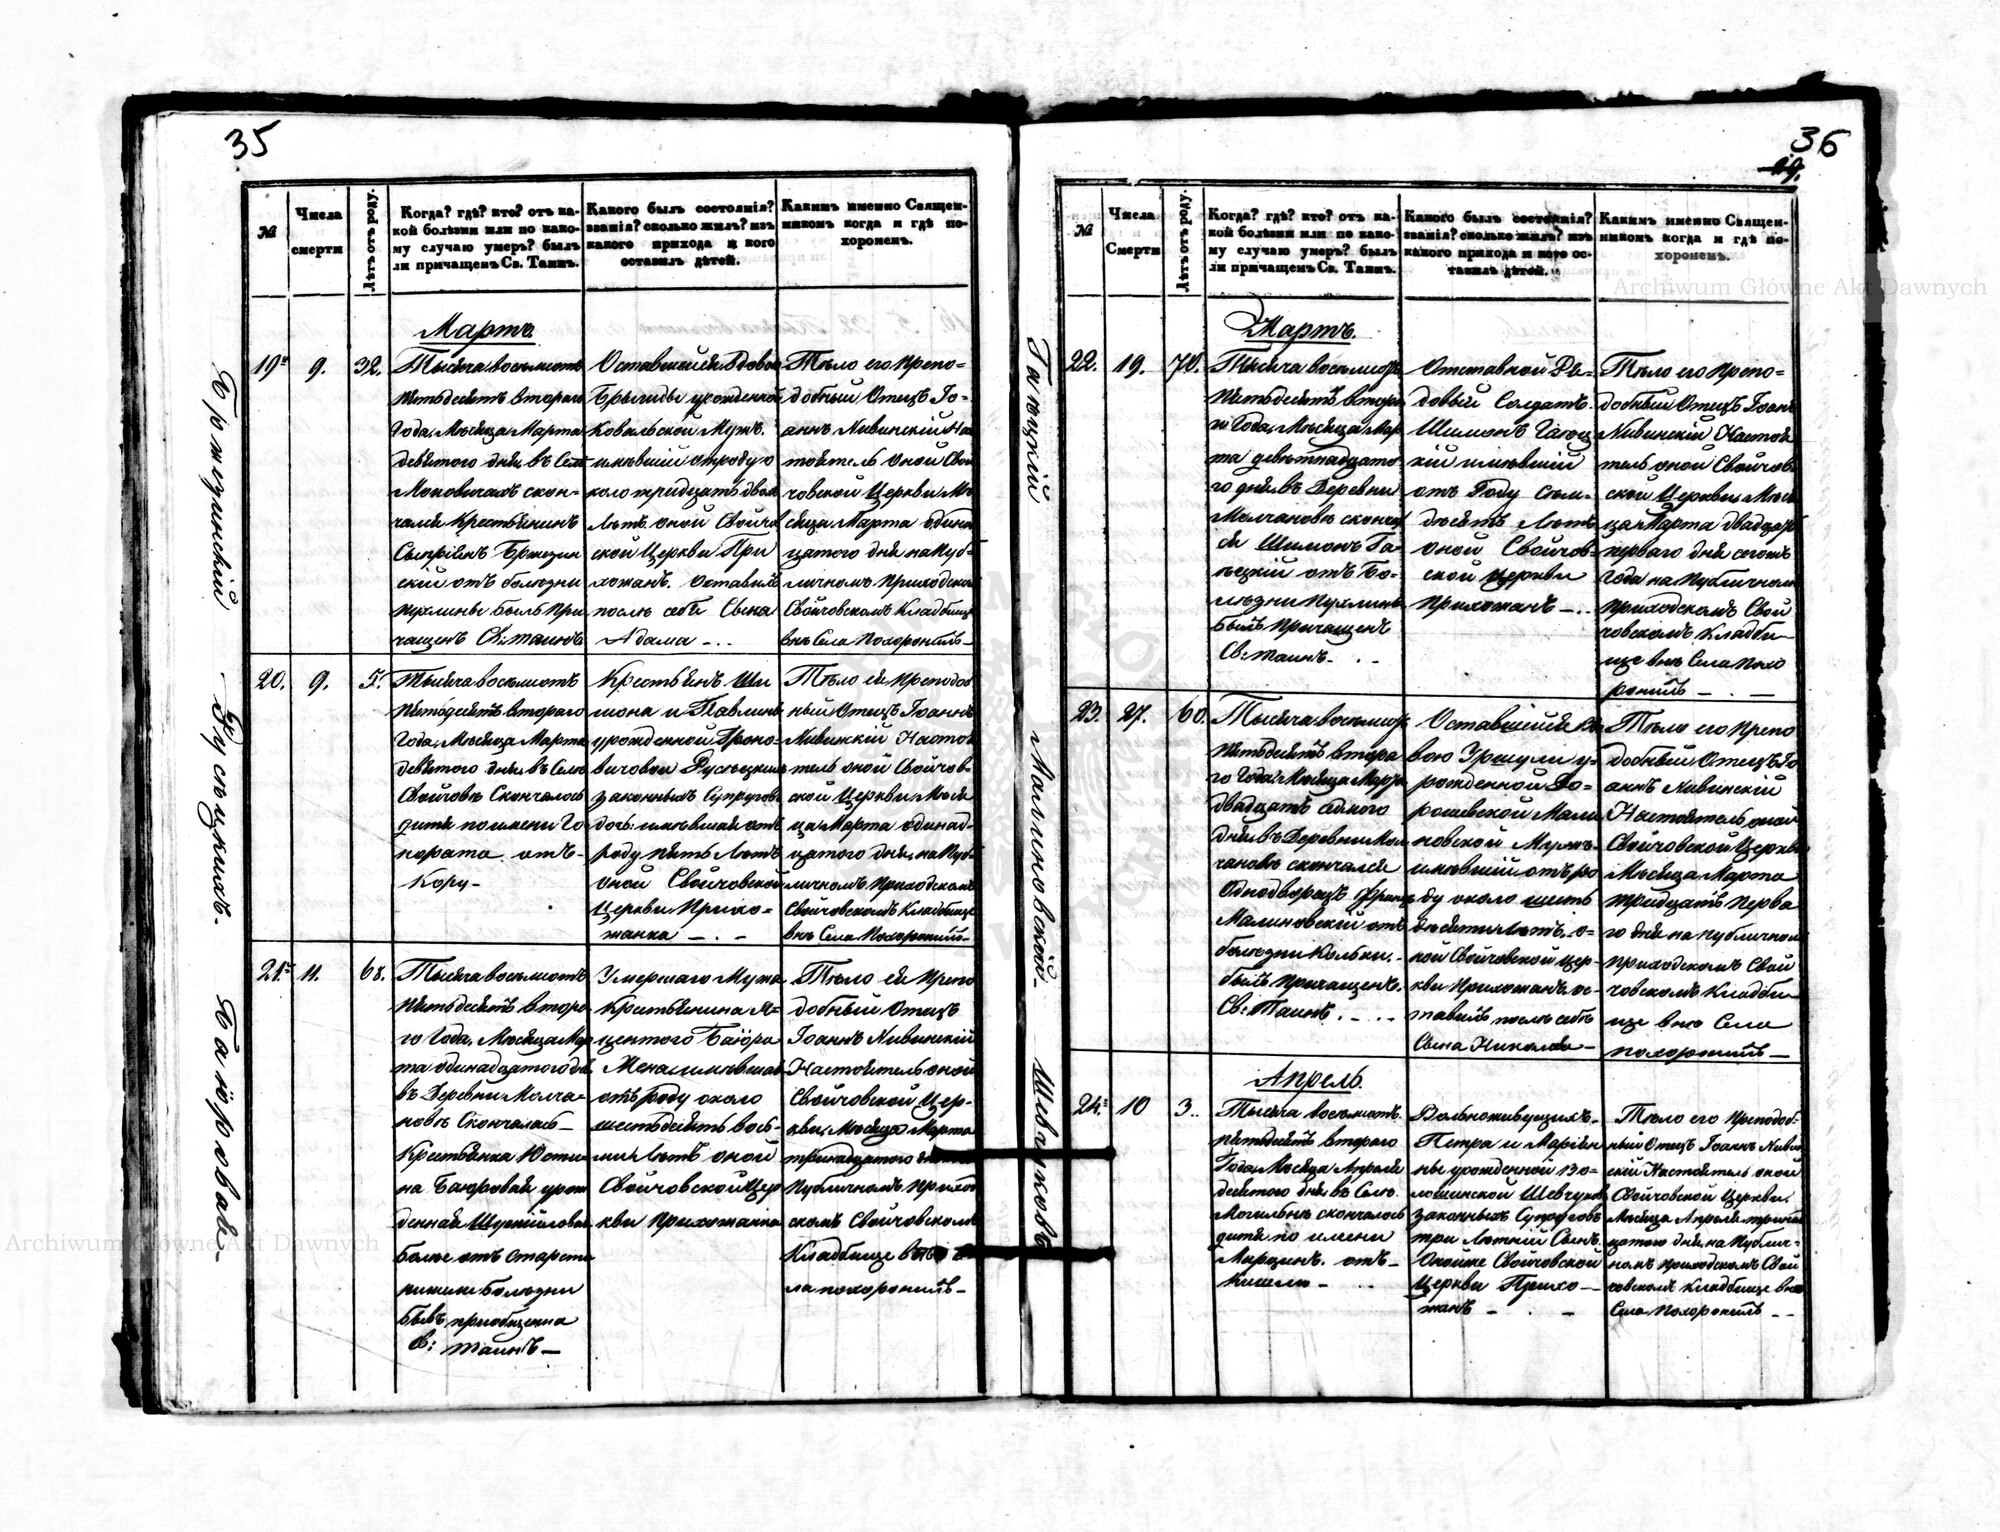 35
№
Числа
смерти
Лѣтъ отъ роду.
Когда? гдѣ? кто? отъ ка-
кой болѣзни или по како-
му случаю умеръ? былъ
ли причащенъ Св. Таинъ.
Какого былъ состоянія?
званія? сколько жилъ? изъ
какого прихода и кого
оставилъ дѣтей.
Какимъ именно Священ-
никомъ когда и гдѣ по-
хороненъ.
Мартъ.
19
9.
32.
Тысяча восемьсотъ
пятьдесятъ втораго
Года, Мѣсяца Марта
девятого дня, въ Селѣ
скон-
чался Крестьянинъ
скій отъ болѣзни
пухлины былъ при
чащенъ Св: таинъ
Оставшейся Вдовой
урожденной
Ковальской Мужъ.
имѣвшій отроду о
коло тридцать два
Лѣтъ. оной Свойчо
ской Церкви При
хожанъ. Оставилъ
послѣ себя Сына
Адама - . .
Тѣло его Препо-
добный Отецъ Іо-
аннъ Нивинскій На
тоятель оной Свой
човской Церкви Мѣ
сяца Марта одина
цатого дня на Пуб-
личномъ приходском
Свойчовскомъ Кладбище
внѣ Села Похоронилъ -
20.
9.
5.
Тысяча восемьсотъ
пятьдесятъ втораго
Года, Мѣсяца Марта
девятого дня, въ Селѣ
Свойчовѣ Скончалось
дитя по имени Го
нората отъ-
Кору-
Крестьянъ Ши
мона и Павлины
урожденной
законныхъ Супруговъ
дочь: имѣвшая отъ
роду пять Лѣтъ
оной Свойчовской
Церкви Прихо=
жанка - . -
Тѣло ея Преподоб
ный Отецъ Іоаннъ
Нивинскій Настоя
тель оной Свойчов-
ской Церкви, Мѣся
ца Марта одинад-
цатого дня, на Пуб-
личномъ Приходскомъ
Свойчовскомъ Кладбище
внѣ Села Похоронилъ -
21
11.
68.
Тысяча восемьсотъ
пятьдесятъ второ
го Года, Мѣсяца Мар
та одинадцатого дня
въ Деревни Молча-
новѣ Скончалась -
Крестьянка Юсти
на Баюровая урож
денная
болѣе отъ старости
нежели болѣзни
бывъ приобщена
Св: таинъ -
Умершаго Мужа
Крестьянина Я=
центого Баюра
Жена, имѣвшая
отъ роду около
шестьдесятъ вось-
ми Лѣтъ оной
Свойчовской Цер
кви прихожанка
Тѣло ея Препо
добный Отецъ
Іоаннъ Нивинскій
Настоятель оной
Свойчовской Цер-
кви, Мѣсяца Марта
тринадцатого дня
Публичномъ Прихо
скомъ Свойчовскомъ
Кладбище внѣ
ла похоронилъ -
36
19.
№
Числа
Смерти
Лѣтъ отъ роду.
Когда? гдѣ? кто? отъ ка-
кой болѣзни или по како-
му случаю умеръ? былъ
ли причащенъ Св. Таинъ.
Какого былъ состоянія?
званія? сколько жилъ? изъ
какого прихода и кого ос-
тавилъ дѣтей.
Какимъ именно Священ-
никомъ когда и гдѣ по-
хороненъ.
Мартъ.
22.
19.
70.
Тысяча восемьсотъ
пятьдесятъ втора
го Года, Мѣсяца Мар
та девятнадцато
го дня, въ Деревни
Молчановѣ скончал
ся Шимонъ Га-
лецкій отъ Бо-
лѣзни Пухлины
былъ Причащенъ
Св: таинъ - . -
Отставной Ря-
довый Солдатъ
Шимонъ
кій имѣвшій
отъ Роду Семь-
десятъ Лѣтъ
оной Свойчов-
ской церкви
Прихожанъ - . .
Тѣло его Препо=
добный Отецъ Іоаннъ
Нивинскій Настоя
тель оной Свойчов
ской Церкви, Мѣся
ца Марта двадцать
перваго дня сегожъ
Года на публичном
приходскомъ Свой
човскомъ кладби-
ще внѣ Села похо
ронилъ - . -
23.
27.
60.
Тысяча восемьсотъ
пятьдесятъ втора
го Года, Мѣсяца Марта
двадцать седмого
дня, въ Деревни Мол
чановѣ скончался
Однодворецъ Франц
Малиновскій отъ
болѣзни Кольки. -
былъ Причащенъ.
Св: Таинъ. . - . .
Оставшійся Вдо
вою Уршули у-
рожденной До-
рошевской Мали
новской Мужъ
имѣвшій отъ ро
ду около шесть
десяти Лѣтъ, о-
ной Свойчовской Цер-
кви Прихожанъ, ос-
тавилъ послѣ себѣ
Сына Николая -
Тѣло его Препо
добный Отецъ Іо
аннъ Нивинскій
Настоятель оной
Свойчовской Церкви
Мѣсяца Марта
тридцать перва
го дня на публичном
приходскомъ Свой
човскомъ кладби-
ще внѣ Села
похоронилъ -
Апрель.
24.
10
3..
Тысяча восемьсотъ.
пятьдесятъ второго
Года, Мѣсяца Апреля
десятого дня въ Селѣ.
Могильнѣ скончалось
дитя по имени
Марцинъ. отъ-
Кашлю - . . .
Вольноживущихъ.
Петра и Маріян
ны урожденной Во-
лошинской Шевчуковъ
законныхъ Супруговъ
три Лѣтній Сынъ.
Онойже Свойчовской
Церкви Прихо -
жанъ - . -
Тѣло его Преподоб-
ный Отецъ Іоаннъ Нивин
скій Настоятель оной
Свойчовской Церкви.
Мѣсяца Апреля трина
цатого дня, на Публич=
номъ приходскомъ Свой
човскомъ Кладбище внѣ
Села Похоронилъ - -
Галецкій
Малиновскій
Шевчуковъ
Баюровав-
Archiwum Główne Akt Dawnych
Archiwum Główne Akt Dawnych